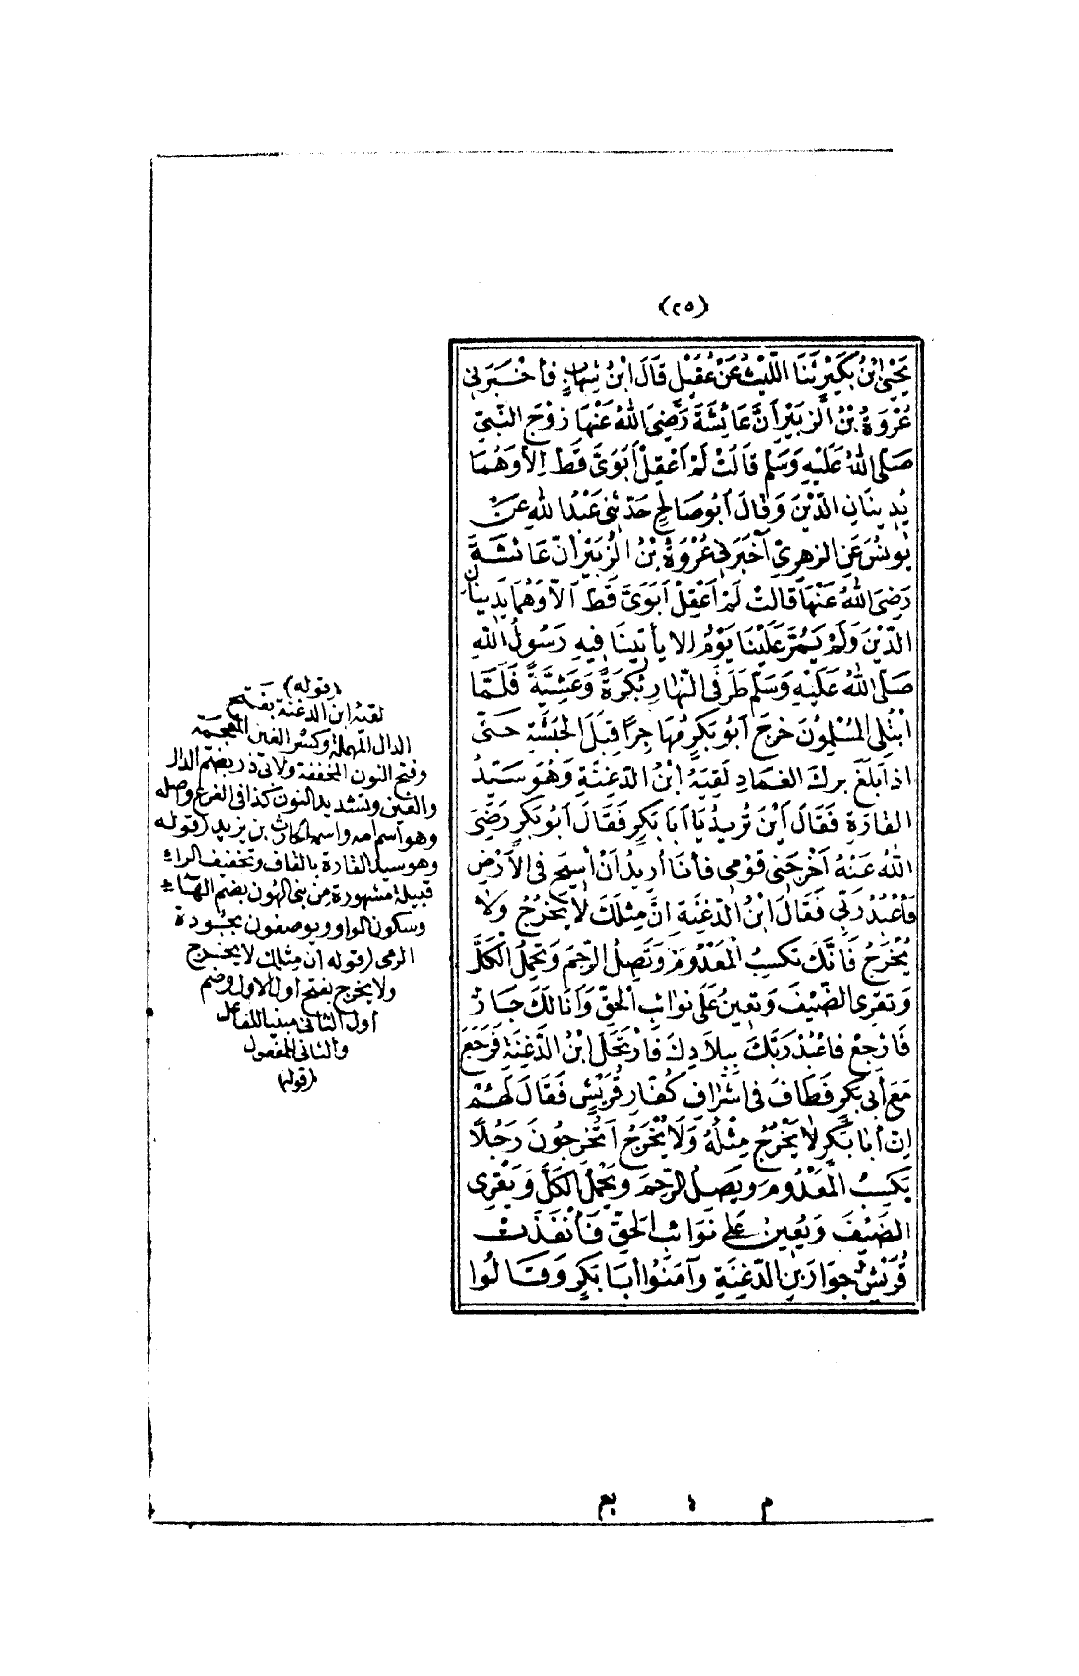 (٢٥)
يَحْيَى ابْنُ بُكَيْرٍ ثَنَا اللَّيْثُ عَنْ عُقَيْلٍ قَالَ ابْنُ شِهَابٍ فَأَخْبَرَنِي
عُرْوَةُ بْنُ الزُّبَيْرِ أَنَّ عَائِشَةَ رَضِيَ اللهُ عَنْهَا زَوْجَ النَّبِيِّ
صَلَّى اللهُ عَلَيْهِ وَسَلَّمَ قَالَتْ لَمْ أَعْقِلْ أَبَوَيَّ قَطُّ اِلَّا وَهُمَا
يَدِينَانِ الدِّيْنَ وَقَالَ أَبُو صَالِحٍ حَدَّثَنِي عَبْدُ اللهِ عَنْ
يُونُسَ عَنِ الزُّهْرِيِّ أَخْبَرَنِي عُرْوَةُ بْنُ الزُّبَيْرِ أَنَّ عَائِشَةَ
رَضِيَ اللهُ عَنْهَا قَالَتْ لَمْ أَعْقِلْ أَبَوَيَّ قَطُّ اَلَّا وَهُمَا يَدِينَانِ
الدِّيْنَ وَلَمْ يَمُرَّ عَلَيْنَا يَوْمٌ اِلَّا يَأْتِينَا فِيهِ رَسُولُ اللهِ
صَلَّى اللهُ عَلَيْهِ وَسَلَّمَ طَرَفَيِ النَّهَارِ بُكْرَةً وَعَشِيَّةً فَلَمَّا
ابْتُلِيَ الْمُسْلِمُونَ خَرَجَ أَبُو بَكْرٍ مُهَاجِرًا قِبَلَ الْحَبَشَةِ حَتَّى
اذا بَلَغَ بَرْكَ الغِمَادِ لَقِيَهُ ابْنُ الدَّغِنَةِ وَهُوَ سَيِّدُ
القَارَةِ فَقَالَ أَيْنَ تُرِيدُ يَا أَبَا بَكْرٍ فَقَالَ أَبُو بَكْرٍ رَضِيَ
اللهُ عَنْهُ أَخْرَجَنِي قَوْمِي فَأَنَا أُرِيدُ أَنْ أَسِيحَ فِي الْأَرْضِ
فَأَعْبُدُ رَبِّي فَقَالَ ابْنُ الدَّغِنَةِ اِنَّ مِثْلَكَ لَا يَخْرُجُ وَلَا
يُخْرَجُ فَاِنَّكَ تَكْسِبُ الْمَعْدُومَ وَتَصِلُ الرَّحِمَ وَتَحْمِلُ الْكَلَّ
وَتَقْرِى الضَّيْفَ وَتُعِينُ عَلَى نَوَائِبِ الْحَقِّ وَأَنَا لَكَ جَارٌ
فَارْجِعْ فَاعْبُدْ رَبَّكَ بِبِلَادِكَ فَارْتَحَلَ ابْنُ الدَّغِنَةِ فَرَجَعَ
مَعَ أَبِي بَكْرٍ فَطَافَ فِي اَشْرَافِ كُفَّارِ قُرَيْشٍ فَقَالَ لَهُمْ
اِنَّ أَبَا بَكْرٍ لَا يَخْرُجُ مِثْلُهُ وَلَا يُخْرَجُ أَتُخْرِجُونَ رَجُلًا
يَكْسِبُ الْمَعْدُومَ وَيَصِلُ الرَّحِمَ وَيَحْمِلُ الْكَلَّ وَيَقْرِى
الضَيْفَ وَيُعِينُ عَلَى نَوَائِبِ الْحَقِّ فَأَنْفَذَتْ
قُرَيْشٌ جِوَارَ بْنِ الدَّغِنَةِ وَآمَنُوا أَبَا بَكْرٍ وَقَالُوا
(قوله)
لقيه ابن الدغنة بفتح
الدال المهملة وكسر الغين المعجمة
وفتح النون المخففة ولابي ذر بضم الدال
والغين وتشديد النون كذا في الفرع وصله
وهو اسم امه واسمه الحارث بن يزيد (قوله
وهو سيد القارة بالقاف وتخفيف الراء
قبيلة مشهورة من بني الهون بضم الهاء
وسكون الواو ويوصفون بجودة
الرمي (قوله ان مثلك لا يخرج
ولا يخرج بفتح اول الاول وضم
اول الثاني مبنيا للفاعل
والثاني للمفعول
(قوله